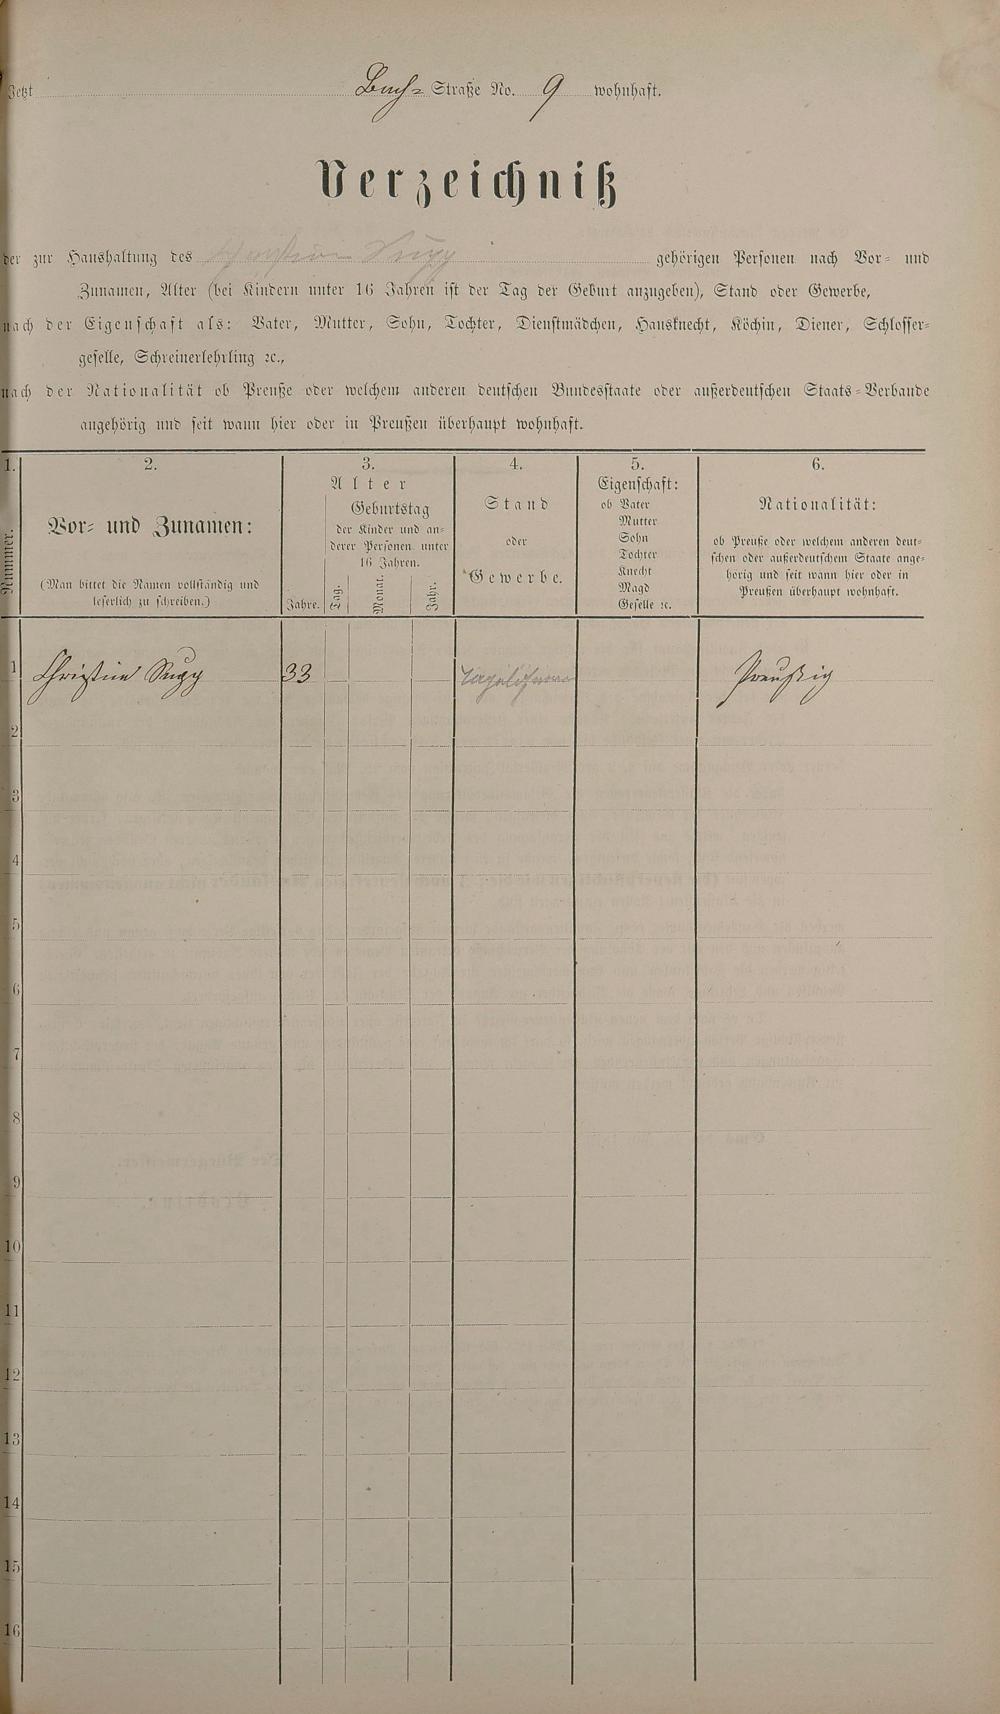 Jetzt Bach- Straße No. 9 wohnhaft.
Verzeichniß
der zur Haushaltung des gehörigen Personen nach Vor- und
Zunamen, Alter (bei Kindern unter 16 Jahren ist der Tag der Geburt anzugeben), Stand oder Gewerbe,
nach der Eigenschaft als: Vater, Mutter, Sohn, Tochter, Dienstmädchen, Hausknecht, Köchin, Diener, Schlosser-
geselle, Schreinerlehrling ꝛc.,
nach der Nationalität ob Preuße oder welchem anderen deutschen Bundesstaate oder außerdeutschen Staats-Verbande
angehörig und seit wann hier oder in Preußen überhaupt wohnhaft.
1.
Nummer.
2.
Vor- und Zunamen:
(Man bittet die Namen vollständig und
leserlich zu schreiben.)
3.
Alter
Jahre.
Geburtstag
der Kinder und an-
derer Personen unter
16 Jahren.
Tag.
Monat.
Jahr.
4.
Stand
oder
Gewerbe.
5.
Eigenschaft:
ob Vater
Mutter
Sohn
Tochter
Knecht
Magd
Geselle ꝛc.
6.
Nationalität:
ob Preuße oder welchem anderen deut-
schen oder außerdeutschem Staate ange-
hörig und seit wann hier oder in
Preußen überhaupt wohnhaft.
1 33
2
3
4
5
6
7
8
9
10
11
12
13
14
15
16